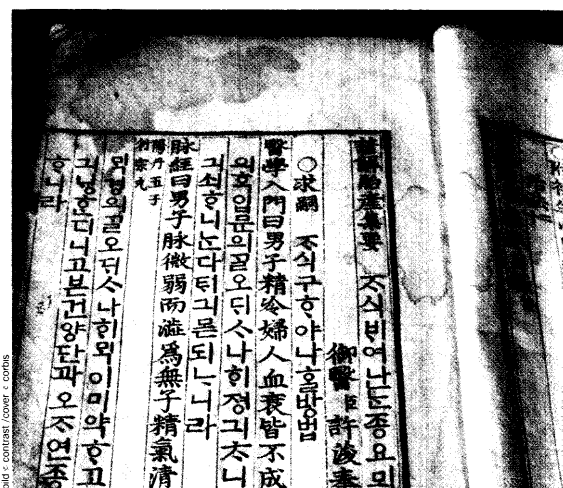 諺解胎産集要 ᄌᆞ식ᄇᆡ여나ᄂᆞᆫ죵요모
御醫臣許浚奉
○求嗣 ᄌᆞ식구ᄒᆞ야나ᄒᆞᆯ방법
醫學入門曰男子精冷婦人血衰皆不成
의ᄒᆞᆨ입문의ᄀᆞᆯ오ᄃᆡᄉᆞ나ᄒᆡ졍긔ᄎᆞ니
긔쇠ᄒᆞ니ᄂᆞᆫ다ᄐᆡ긔몯되ᄂᆞ니라
脉經曰男子脉微弱而澁爲無子精氣清
陽丹五子
衍宗丸
ᄆᆡᆨ경의ᄀᆞᆯ오ᄃᆡᄉᆞ나ᄒᆡᄆᆡᆨ이미약ᄒᆞ고
긔ᄂᆡᆼᄒᆞ디니고본건양단과오ᄌᆞ연죵
ᄒᆞ니라
contrast /cover : corbis